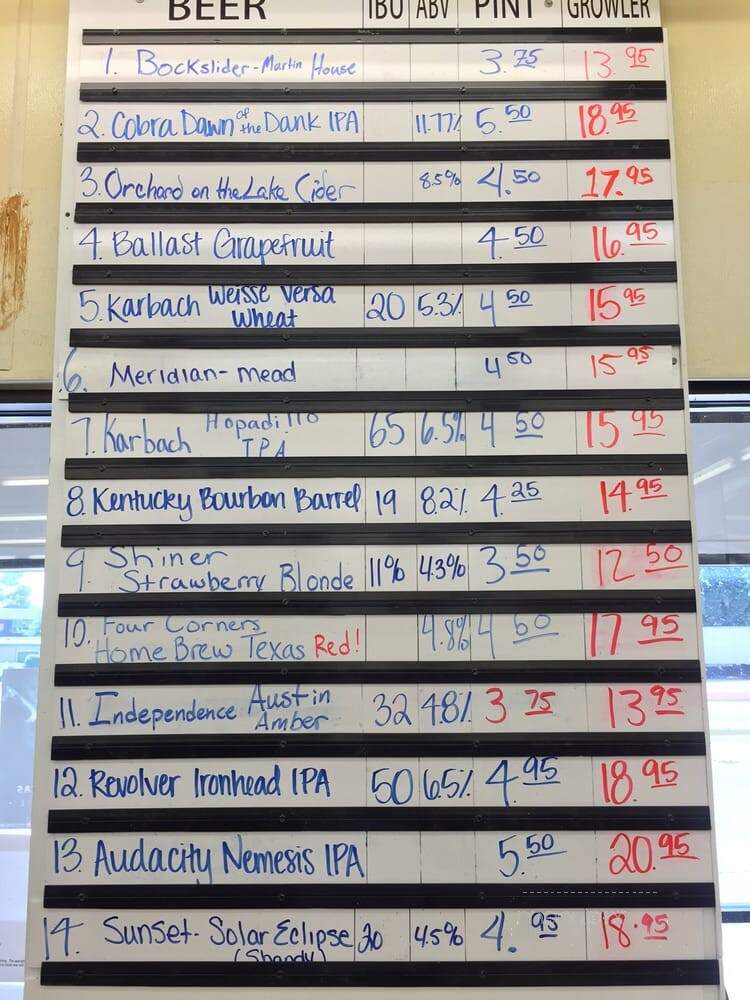 BEER IBU ABV PINT GROWLER
1. Bockslider-Martin House 3.75 13.95
2. Cobra Dawn of the Dank IPA 11.77% 5.50 18.95
3. Orchard on the Lake Cider 8.5% 4.50 17.95
4. Ballast Grapefruit 4.50 16.95
5. Karbach Weisse Versa
Wheat 20 5.3% 4 50 15 95
6. Meridian- mead 4 50 15 95
7. Karbach Hopadillo
IPA 65 6.5% 4 50 15 95
8. Kentucky Bourbon Barrel 19 8.2% 4.25 14.95
9. Shiner
Strawberry Blonde 11% 4.3% 3 50 12 50
10. Four Corners
Home Brew Texas Red! 4.8% 4 50 17 95
11. Independence Austin
Amber 32 4.8% 3 75 13 95
12. Revolver Ironhead IPA 50 6.5% 4.95 18.95
13. Audacity Nemesis IPA 5.50 20.95
14. Sunset- Solar Eclipse 4.5% 4. 95 18.95
(Shandy)